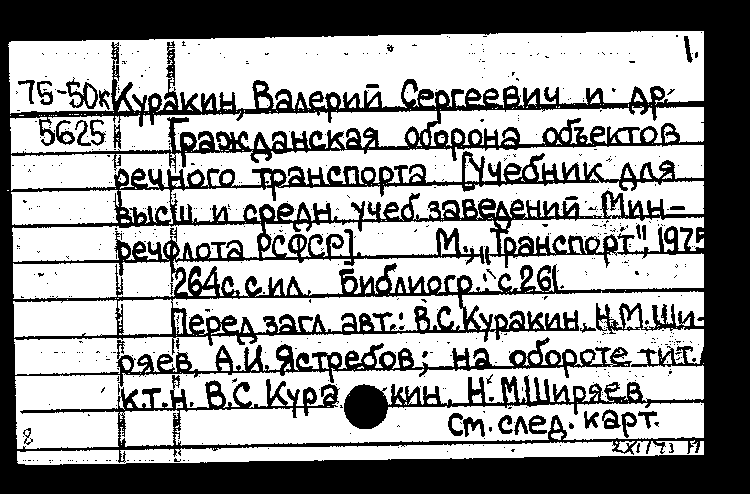 1.
75-50к Куракин, Валерий Сергеевич и др.
5625 Гражданская оборона объектов
речного транспорта [Учебник для
высш. и средн. учеб. заведений Мин-
речфлота РСФСР]. М., „Транспорт", 1975
264с. с ил. Библиогр.: с.261.
Перед загл. авт.: В.С.Куракин, Н.М.Ши-
ряев, А.И. Ястребов; на обороте тит.
к.т.н. В.С. Куракин, Н.М.Ширяев,
См. след. карт.
8